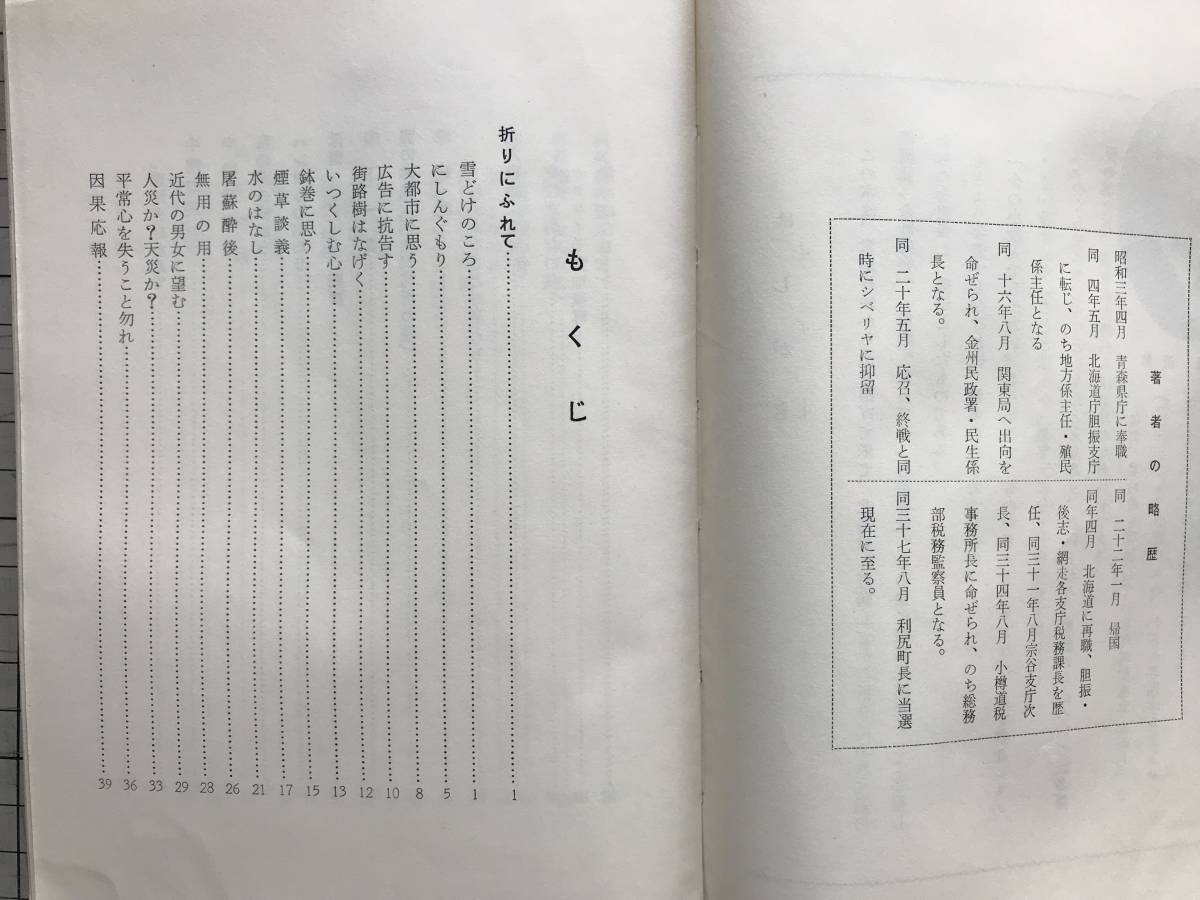 著者の略歴
昭和三年四月　青森県庁に奉職
同　四年五月　北海道庁胆振支庁
に転じ、のち地方係主任・殖民
係主任となる
同　十六年八月　関東局へ出向を
命ぜられ、金州民政署・民生係
長となる。
同　二十年五月　応召、終戦と同
時にシベリヤに抑留
同　二十二年一月　帰国
同年四月　北海道に再職、胆振・
後志・網走各支庁税務課長を歴
任、同三十一年八月宗谷支庁次
長、同三十四年八月　小樽道税
事務所長に命ぜられ、のち総務
部税務監察員となる。
同三十七年八月　利尻町長に当選
現在に至る。
もくじ
折りにふれて…………1
雪どけのころ…………1
にしんぐもり…………5
大都市に思う…………8
広告に抗告す…………10
街路樹はなげく…………12
いつくしむ心…………13
鉢巻に思う…………15
煙草談義…………17
水のはなし…………21
屠蘇酔後…………26
無用の用…………28
近代の男女に望む…………29
人災か？天災か？…………33
平常心を失うこと勿れ…………36
因果応報…………39